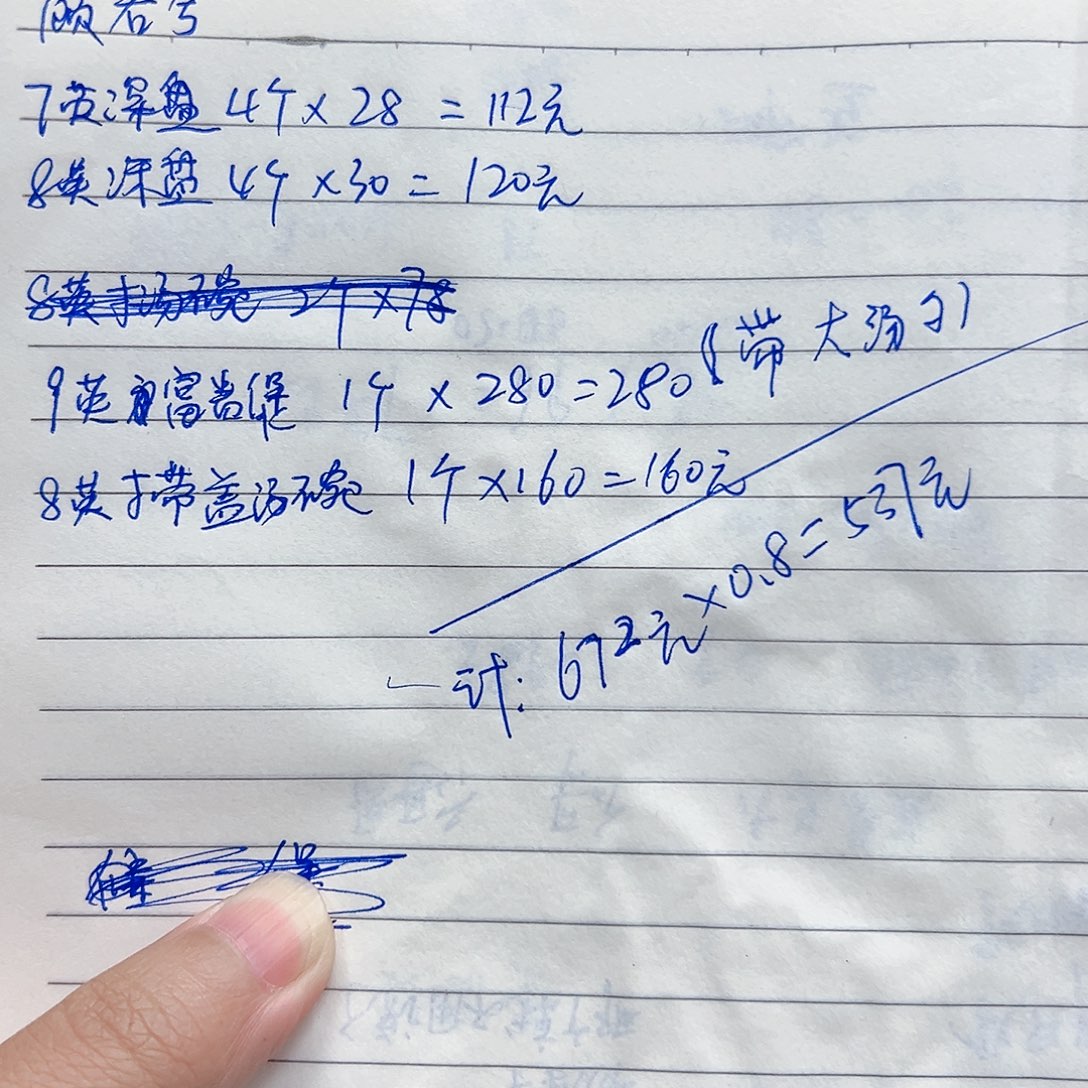 7英深盘 4个×28 = 112元
8英深盘 4个×30 = 120元
8英寸汤碗 2个×78
9英寸富贵煲 1个×280=280 (带大汤勺)
8英寸带盖汤碗 1个×160=160元
一计: 672元×0.8=537元